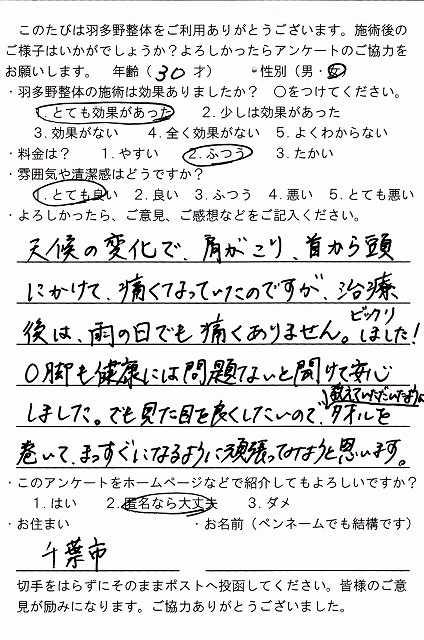 このたびは羽多野整体をご利用ありがとうございます。施術後の
ご様子はいかがでしょうか?よろしかったらアンケートのご協力を
お願いします。 年齢(30才) ・性別(男・女)
・羽多野整体の施術は効果ありましたか? ○をつけてください。
1.とても効果があった 2.少しは効果があった
3.効果がない 4.全く効果がない 5.よくわからない
・料金は? 1.やすい 2.ふつう 3.たかい
・雰囲気や清潔感はどうですか?
1.とても良い 2.良い 3.ふつう 4.悪い 5.とても悪い
・よろしかったら、ご意見、ご感想などをご記入ください。
天候の変化で、肩がこり、首から頭
にかけて、痛くなっていたのですが、治療
後は、雨の日でも痛くありません。ビックリしました!
O脚も健康には問題ないと聞けて安心
しました。でも見た目を良くしたいので、教えていただいたようにタオルを
巻いて、まっすぐになるように頑張ってみようと思います。
・このアンケートをホームページなどで紹介してもよろしいですか?
1.はい 2.匿名なら大丈夫 3.ダメ
・お住まい ・お名前(ペンネームでも結構です)
千葉市
切手をはらずにそのままポストへ投函してください。皆様のご意
見が励みになります。ご協力ありがとうございました。